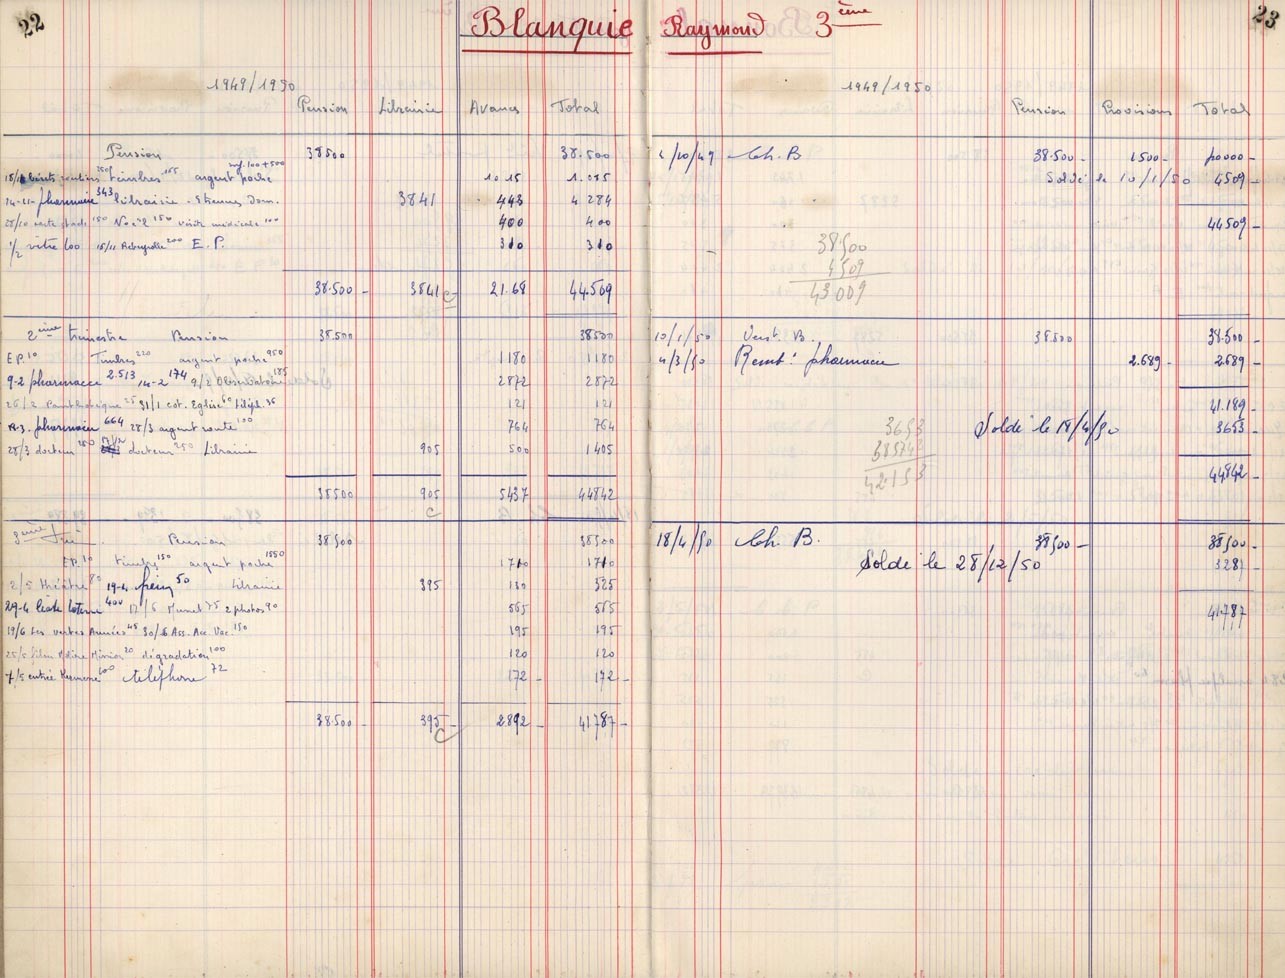 22
Blanquie Raymond 3ème
23
1949/1950
Pension Librairie Avances Total
Pension 38500 38.500
timbres 155 argent poche 100+500 1015 1.015
24-11- pharmacie 343 librairie - Etrennes Dom. 3841 443 4284
150 Noël 150 visite médicale 100 400 400
1/2 vitre 60 15/11 200 E.P. 310 310
38.500 - 3841 21.68 44509
2ème trimestre Pension 38500 38500
E.P. 10 Timbres 220 argent poche 950 1180 1180
9-2 pharmacie 2.513 14-2 174 9/2 Observatoire 185 2872 2872
25 31/1 cot. Eglise 60 téléph. 36 121 121
pharmacie 664 28/3 argent route 100 764 764
28/3 docteur 250 docteur 250 Librairie 905 500 1405
38500 905 5437 44842
3ème Tri. Pension 38500 38500
E.P. 10 timbres 150 argent poche 1550 1710 1710
2/5 théâtre 80 19-4 frein 50 Librairie 395 130 525
29-4 400 Muret 75 2 photos 90 565 565
19/6 Les vertes Années 45 30/6 Ass. Acc. Vac. 150 195 195
25/5 film 20 dégradation 100 120 120
7/5 entrée Kermesse 100 téléphone 72 172 - 172 -
38.500 - 395 - 2892 - 41787 -
1949/1950
Pension Provisions Total
1/10/49 Ch. B 38.500 - 1500 - 40000 -
Solde le 10/1/50 4509 -
44509 -
38500
4509
43009
10/1/50 Vers. B. 38500 38.500 -
4/3/50 Rembt pharmacie 2.689 - 2.689 -
41.189 -
Solde le 18/4/50 3653 -
3653
38500
42153
44842 -
18/4/50 Ch. B. 38500 - 38500 -
Solde le 28/12/50 3287 -
41787